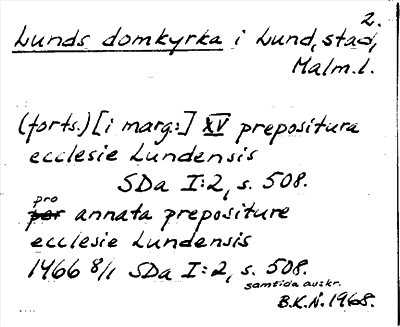 2.
Lunds domkyrka i Lund, stad,
Malm.l.
(forts.) [i marg:] XV prepositura
ecclesie Lundensis
SDa I:2, s. 508.
pro
per annata prepositure
ecclesie Lundensis
1466 8/1 SDa I:2, s. 508.
samtida avskr.
B.K.Å. 1968.